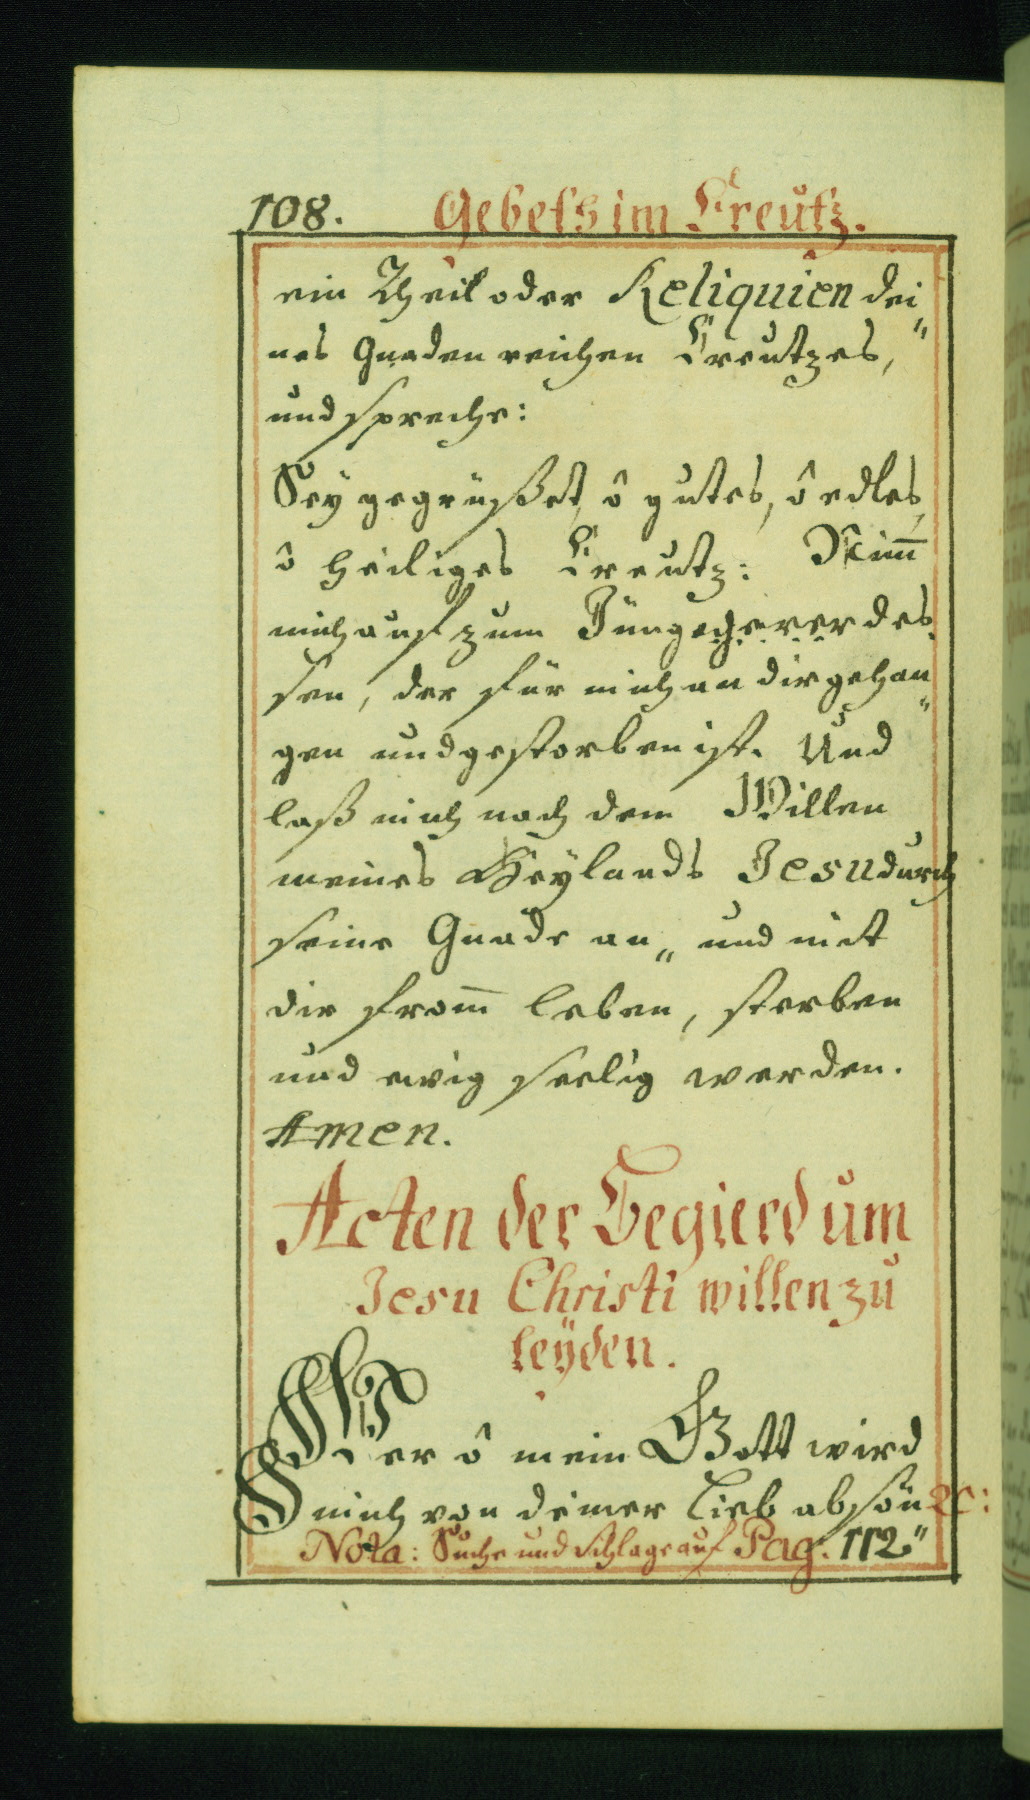 108. Gebeth im Creutz.
ein Theil oder Reliquien dei„
nes Gnaden reichen Creutzes,
und spreche:
Seÿ gegrüsset, ô gutes, ô edles,
ô heiliges Creutz: Nim̅
mich auf zum Jünger des„
sen, der für mich an dir gehan„
gen und gestorben ist. Und
laß mich nach dem Willen
meines Heÿlands Jesu durch
seine Gnade an„ und mit
dir from̅ leben, sterben
und ewig seelig werden.
Amen.
Acten der Begierd um
Jesu Christi willen zu
leÿden.
Wer ô mein Gott wird
mich von deiner Lieb absön ꝛc:
Nota: Suche und schlage auf Pag. 112„